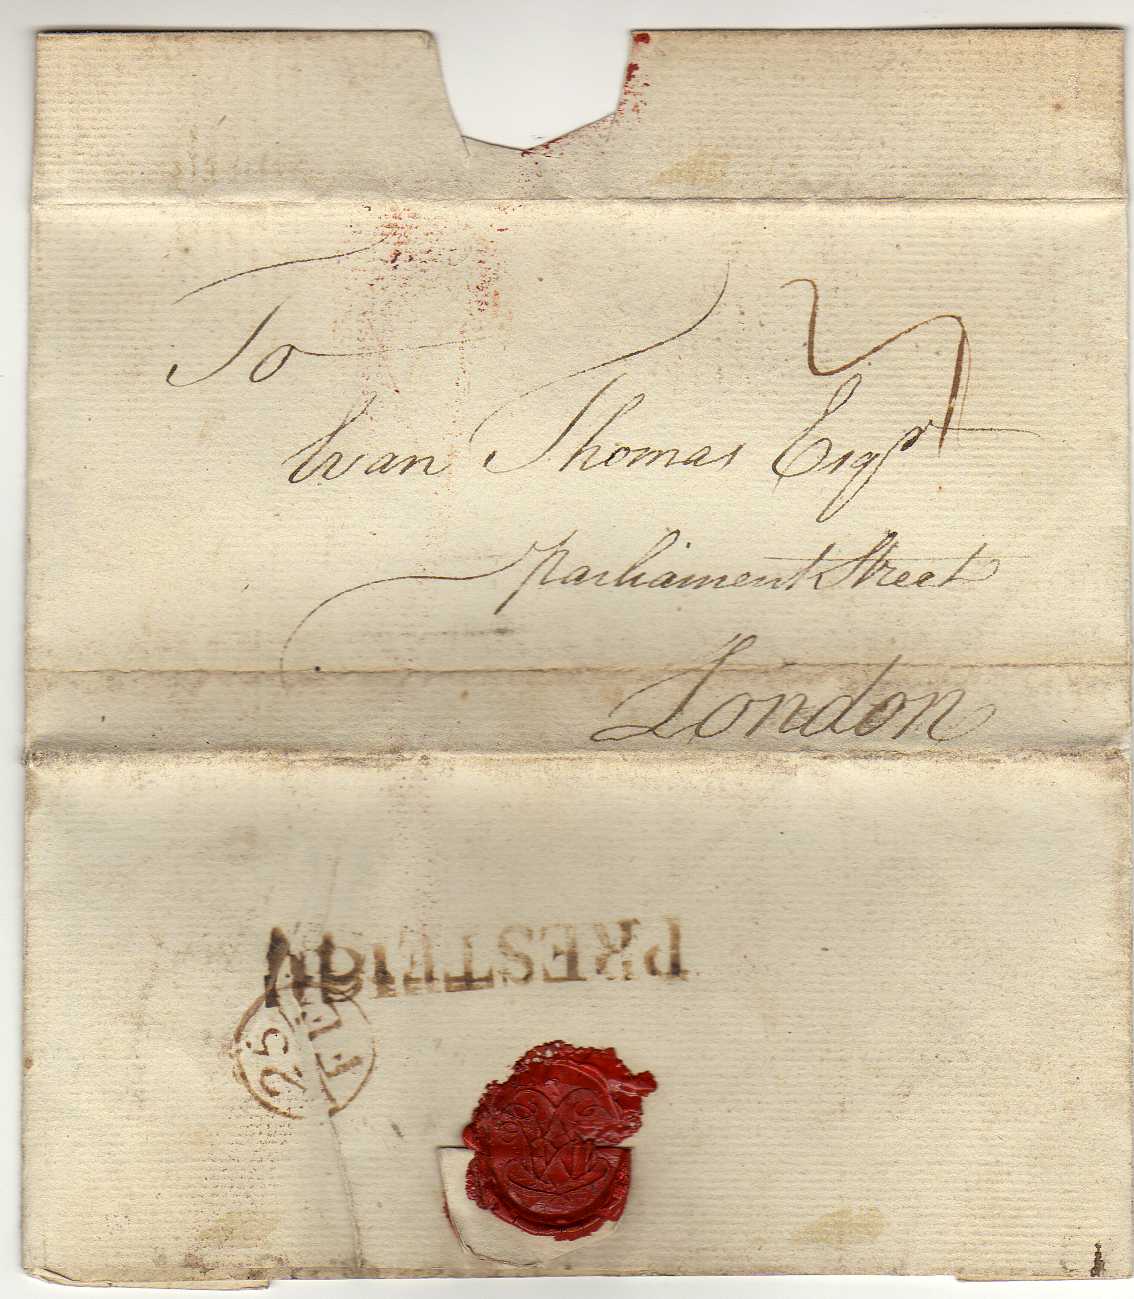 To
Evan Thomas Esqr
Parliament Street
London
PRESTEIGN
25
FE